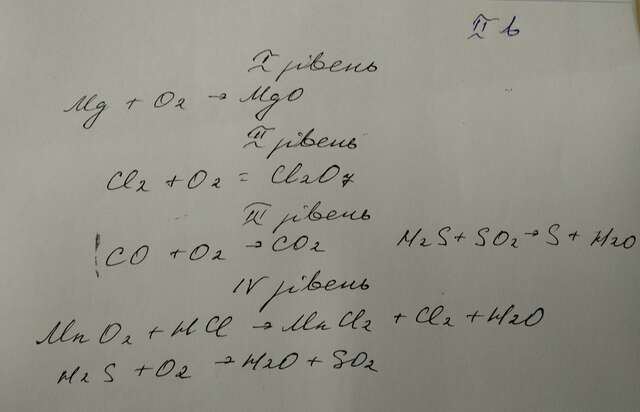 II в
I рівень
Mg + O2 → MgO
II рівень
Cl2 + O2 = Cl2O7
III рівень
CO + O2 → CO2 H2S + SO2 → S + H2O
IV рівень
MnO2 + HCl → MnCl2 + Cl2 + H2O
H2S + O2 → H2O + SO2